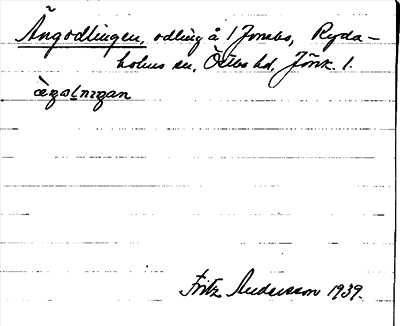 Ängodlingen, odling å 1 Jonsbo, Ryda-
holms sn, Östbo hd, Jönk. l.
ægolnıgan
Fritz Andersson 1939.